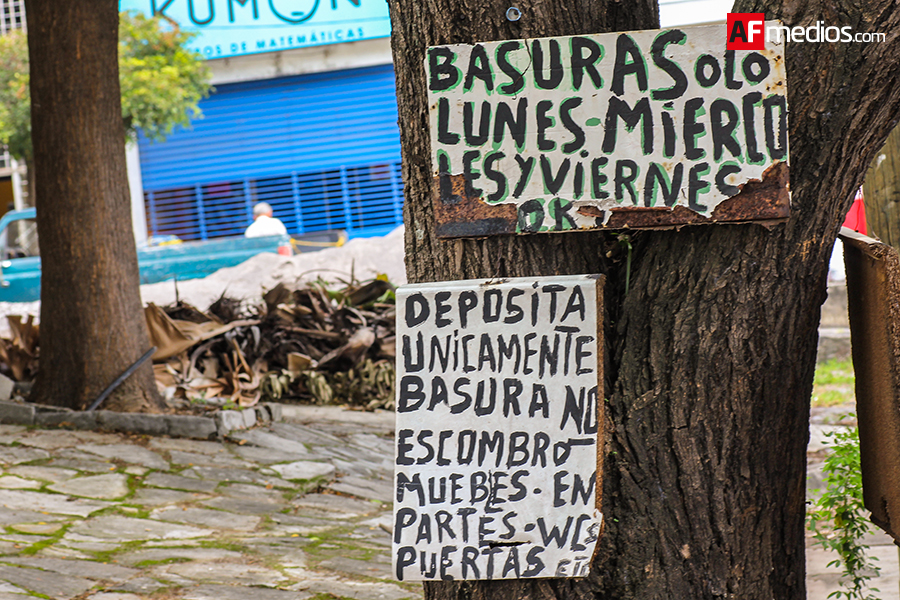 KUMON
OS DE MATEMÁTICAS
AFmedios.com
BASURA SOLO
LUNES-MIERCO
LES Y VIERNES
OK
DEPOSITA
UNICAMENTE
BASURA NO
ESCOMBRO-
MUEBLES-EN
PARTES-WCS
PUERTAS ETC